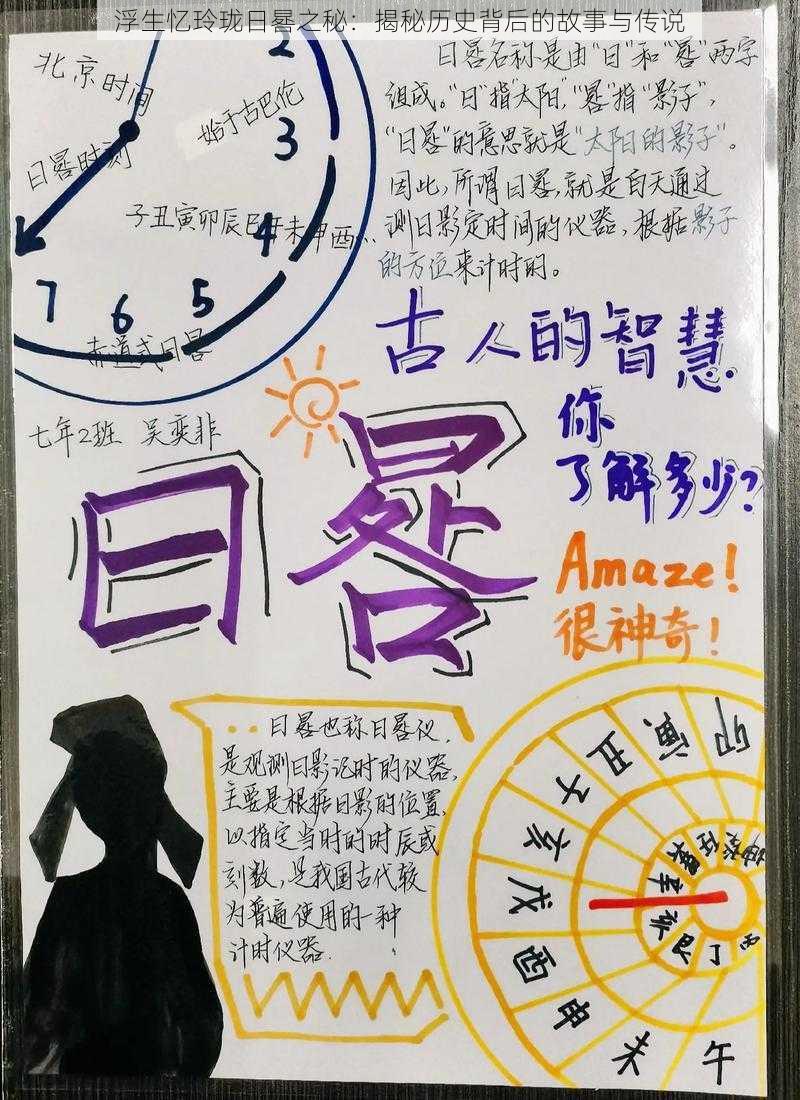 浮生忆玲珑日晷之秘：揭秘历史背后的故事与传说
北京时间
始于古巴伦
日晷时刻
子丑寅卯辰巳午未申酉...
2
3
4
5
6
7
赤道式日晷
日晷名称是由“日”和“晷”两字
组成。“日”指“太阳”，“晷”指“影子”，
“日晷”的意思就是“太阳的影子”。
因此，所谓日晷，就是白天通过
测日影定时间的仪器，根据影子
的方位来计时的。
古人的智慧
你
了解多少?
七年2班 吴奕非
日晷
Amaze!
很神奇!
日晷也称日晷仪，
是观测日影记时的仪器，
主要是根据日影的位置，
以指定当时的时辰或
刻数，是我国古代较
为普遍使用的一种
计时仪器.
卯
寅
丑
子
亥
戌
酉
申
未
午
艮
丁
丙